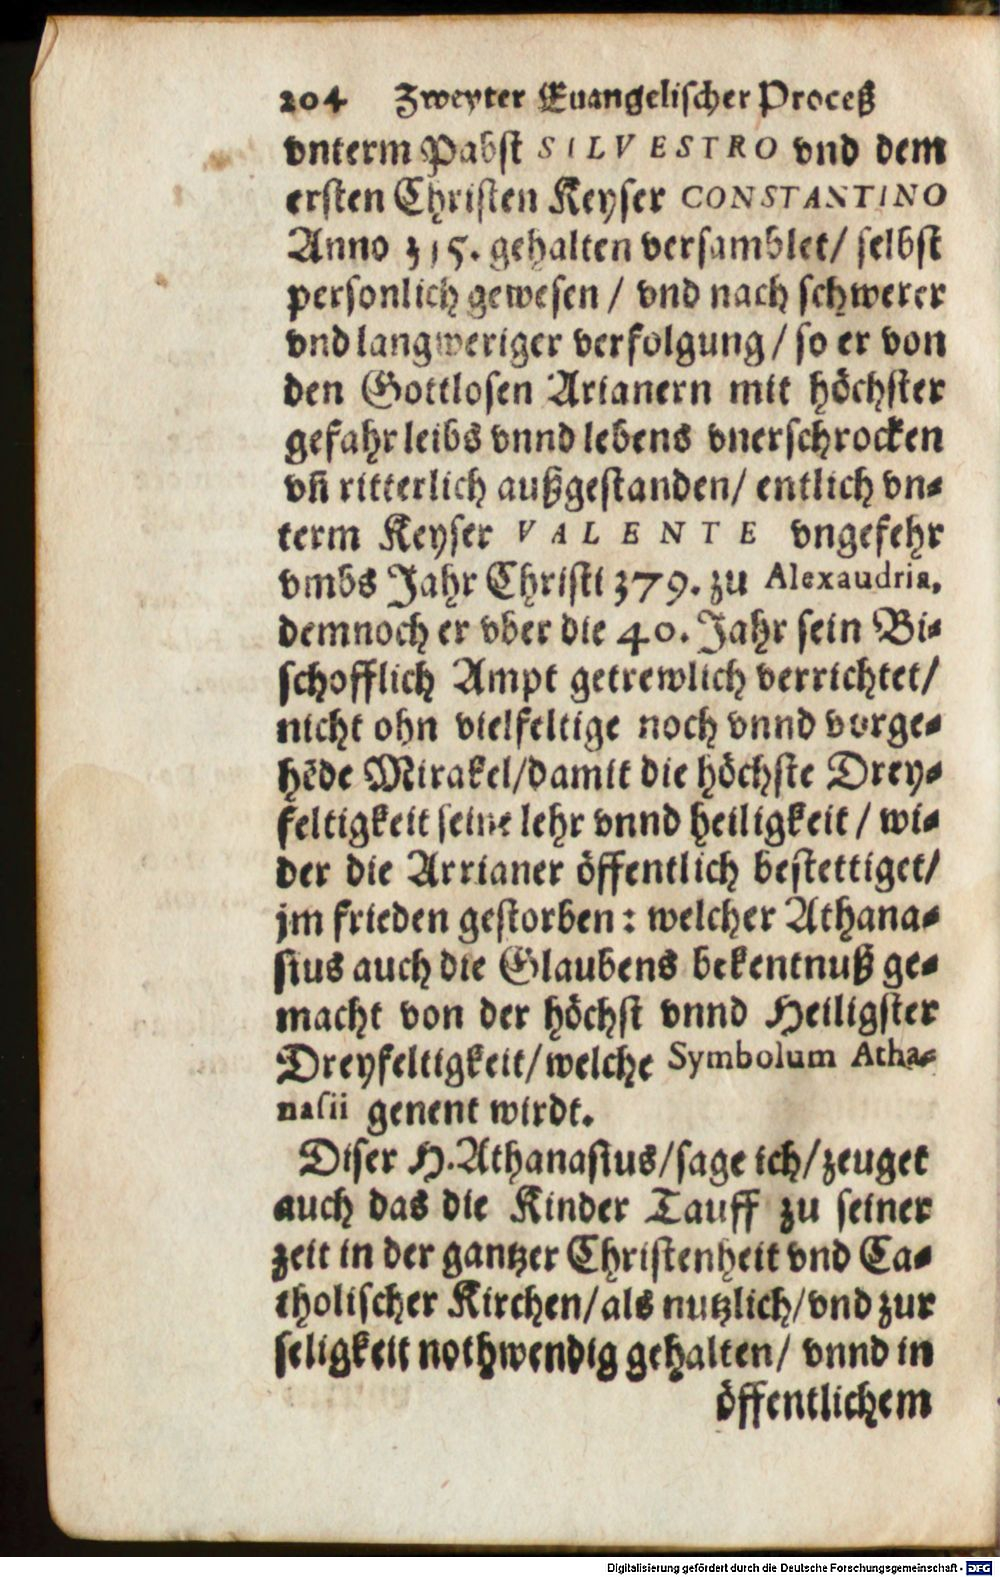 204 Zweyter Euangelischer Proceß
vnterm Pabst SILVESTRO vnd dem
ersten Christen Keyser CONSTANTINO
Anno 315. gehalten versamblet/ selbst
personlich gewesen / vnd nach schwerer
vnd langweriger verfolgung / so er von
den Gottlosen Arianern mit höchster
gefahr leibs vnnd lebens vnerschrocken
vñ ritterlich außgestanden/ entlich vn-
term Keyser VALENTE vngefehr
vmbs Jahr Christi 379. zu Alexaudria,
demnoch er vber die 40. Jahr sein Bi-
schofflich Ampt getrewlich verrichtet/
nicht ohn vielfeltige noch vnnd vorge-
hẽde Mirakel/damit die höchste Drey-
feltigkeit seine lehr vnnd heiligkeit / wi-
der die Arrianer öffentlich bestettiget/
jm frieden gestorben: welcher Athana-
sius auch die Glaubens bekentnuß ge-
macht von der höchst vnnd Heiligster
Dreyfeltigkeit/welche Symbolum Atha-
nasii genent wirdt.
Diser H. Athanasius/sage ich/zeuget
auch das die Kinder Tauff zu seiner
zeit in der gantzer Christenheit vnd Ca-
tholischer Kirchen/als nutzlich/vnd zur
seligkeit nothwendig gehalten/ vnnd in
öffentlichem
Digitalisierung gefördert durch die Deutsche Forschungsgemeinschaft - DFG